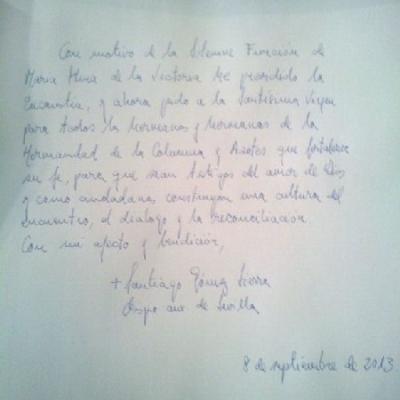 Con motivo de la Solemne Función de
María Stma de la Victoria he presidido la
Eucaristía, y ahora pido a la Santísima Virgen
para todos los hermanos y hermanas de la
Hermandad de la Columna y Azotes que fortalezca
su fe, para que sean testigos del amor de Dios
y como ciudadanos construyan una cultura del
encuentro, el diálogo y la reconciliación.
Con mi afecto y bendición,
+ Santiago Gómez Sierra
Obispo aux. de Sevilla
8 de septiembre de 2013